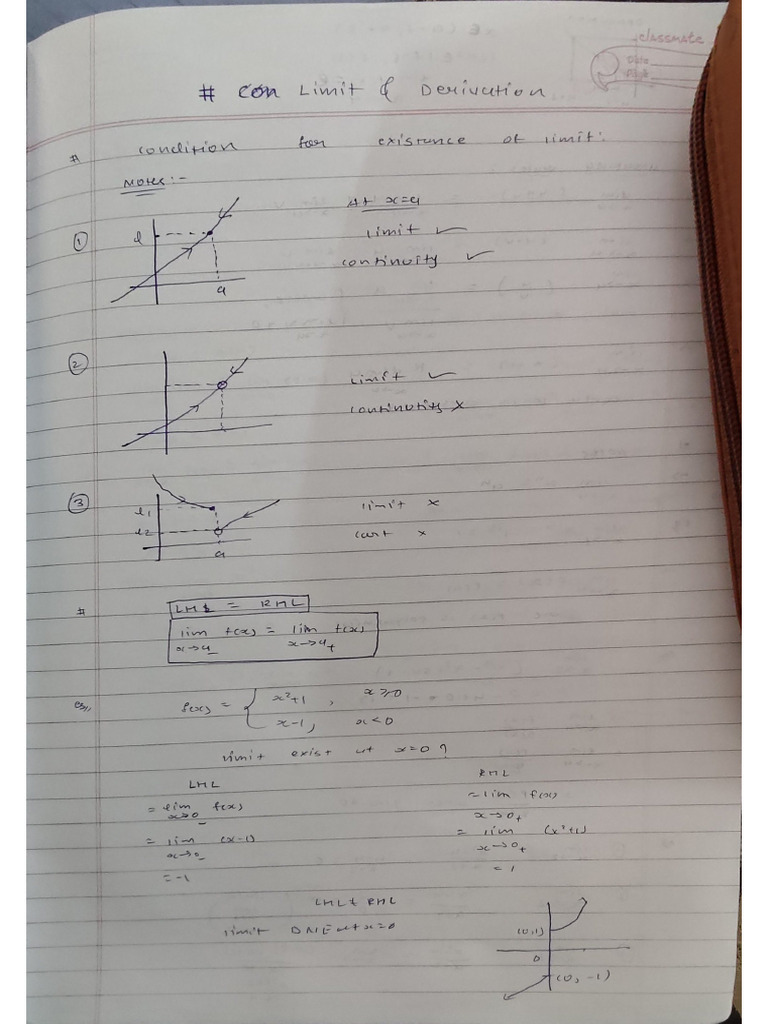 classmate
Date
Page
# Con Limit & Derivation
# condition for existence of limit:
Notes:-
At x=a
① l
limit ✓
continuity ✓
a
②
limit ✓
continutity ×
③ l1
limit ×
l2
cont ×
a
# LHL = RHL
lim f(x) = lim f(x)
x→a- x→a+
eg,, f(x) = { x²+1 , x≥0
x-1, x<0
limit exist at x=0?
LHL RHL
= lim f(x) = lim f(x)
x→0- x→0+
= lim (x-1) = lim (x²+1)
x→0- x→0+
= -1 = 1
LHL ≠ RHL
limit DNE at x=0
(0,1)
0
(0, -1)